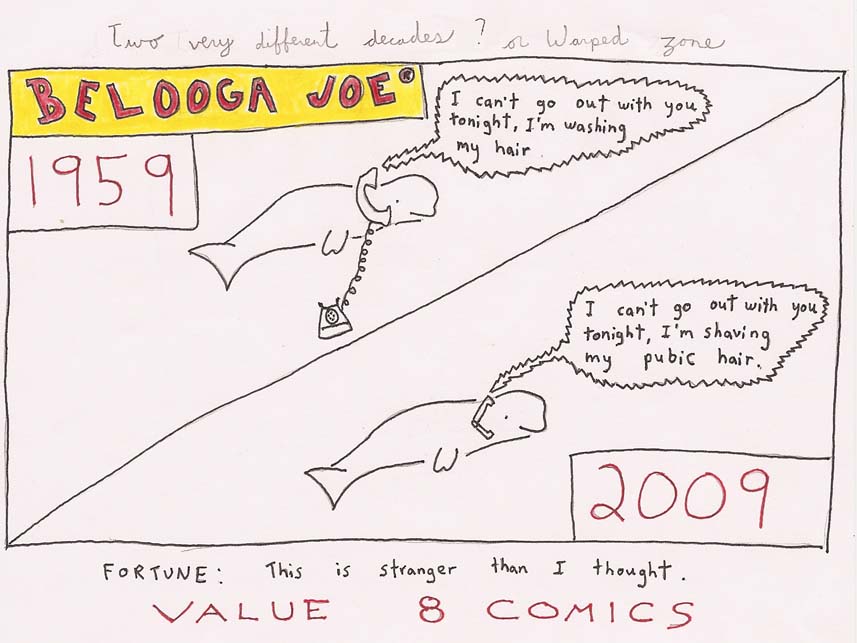 Two very different decades? or Warped zone
BELOOGA JOE®
1959
I can't go out with you
tonight, I'm washing
my hair
I can't go out with you
tonight, I'm shaving
my pubic hair.
2009
FORTUNE: This is stranger than I thought.
VALUE 8 COMICS